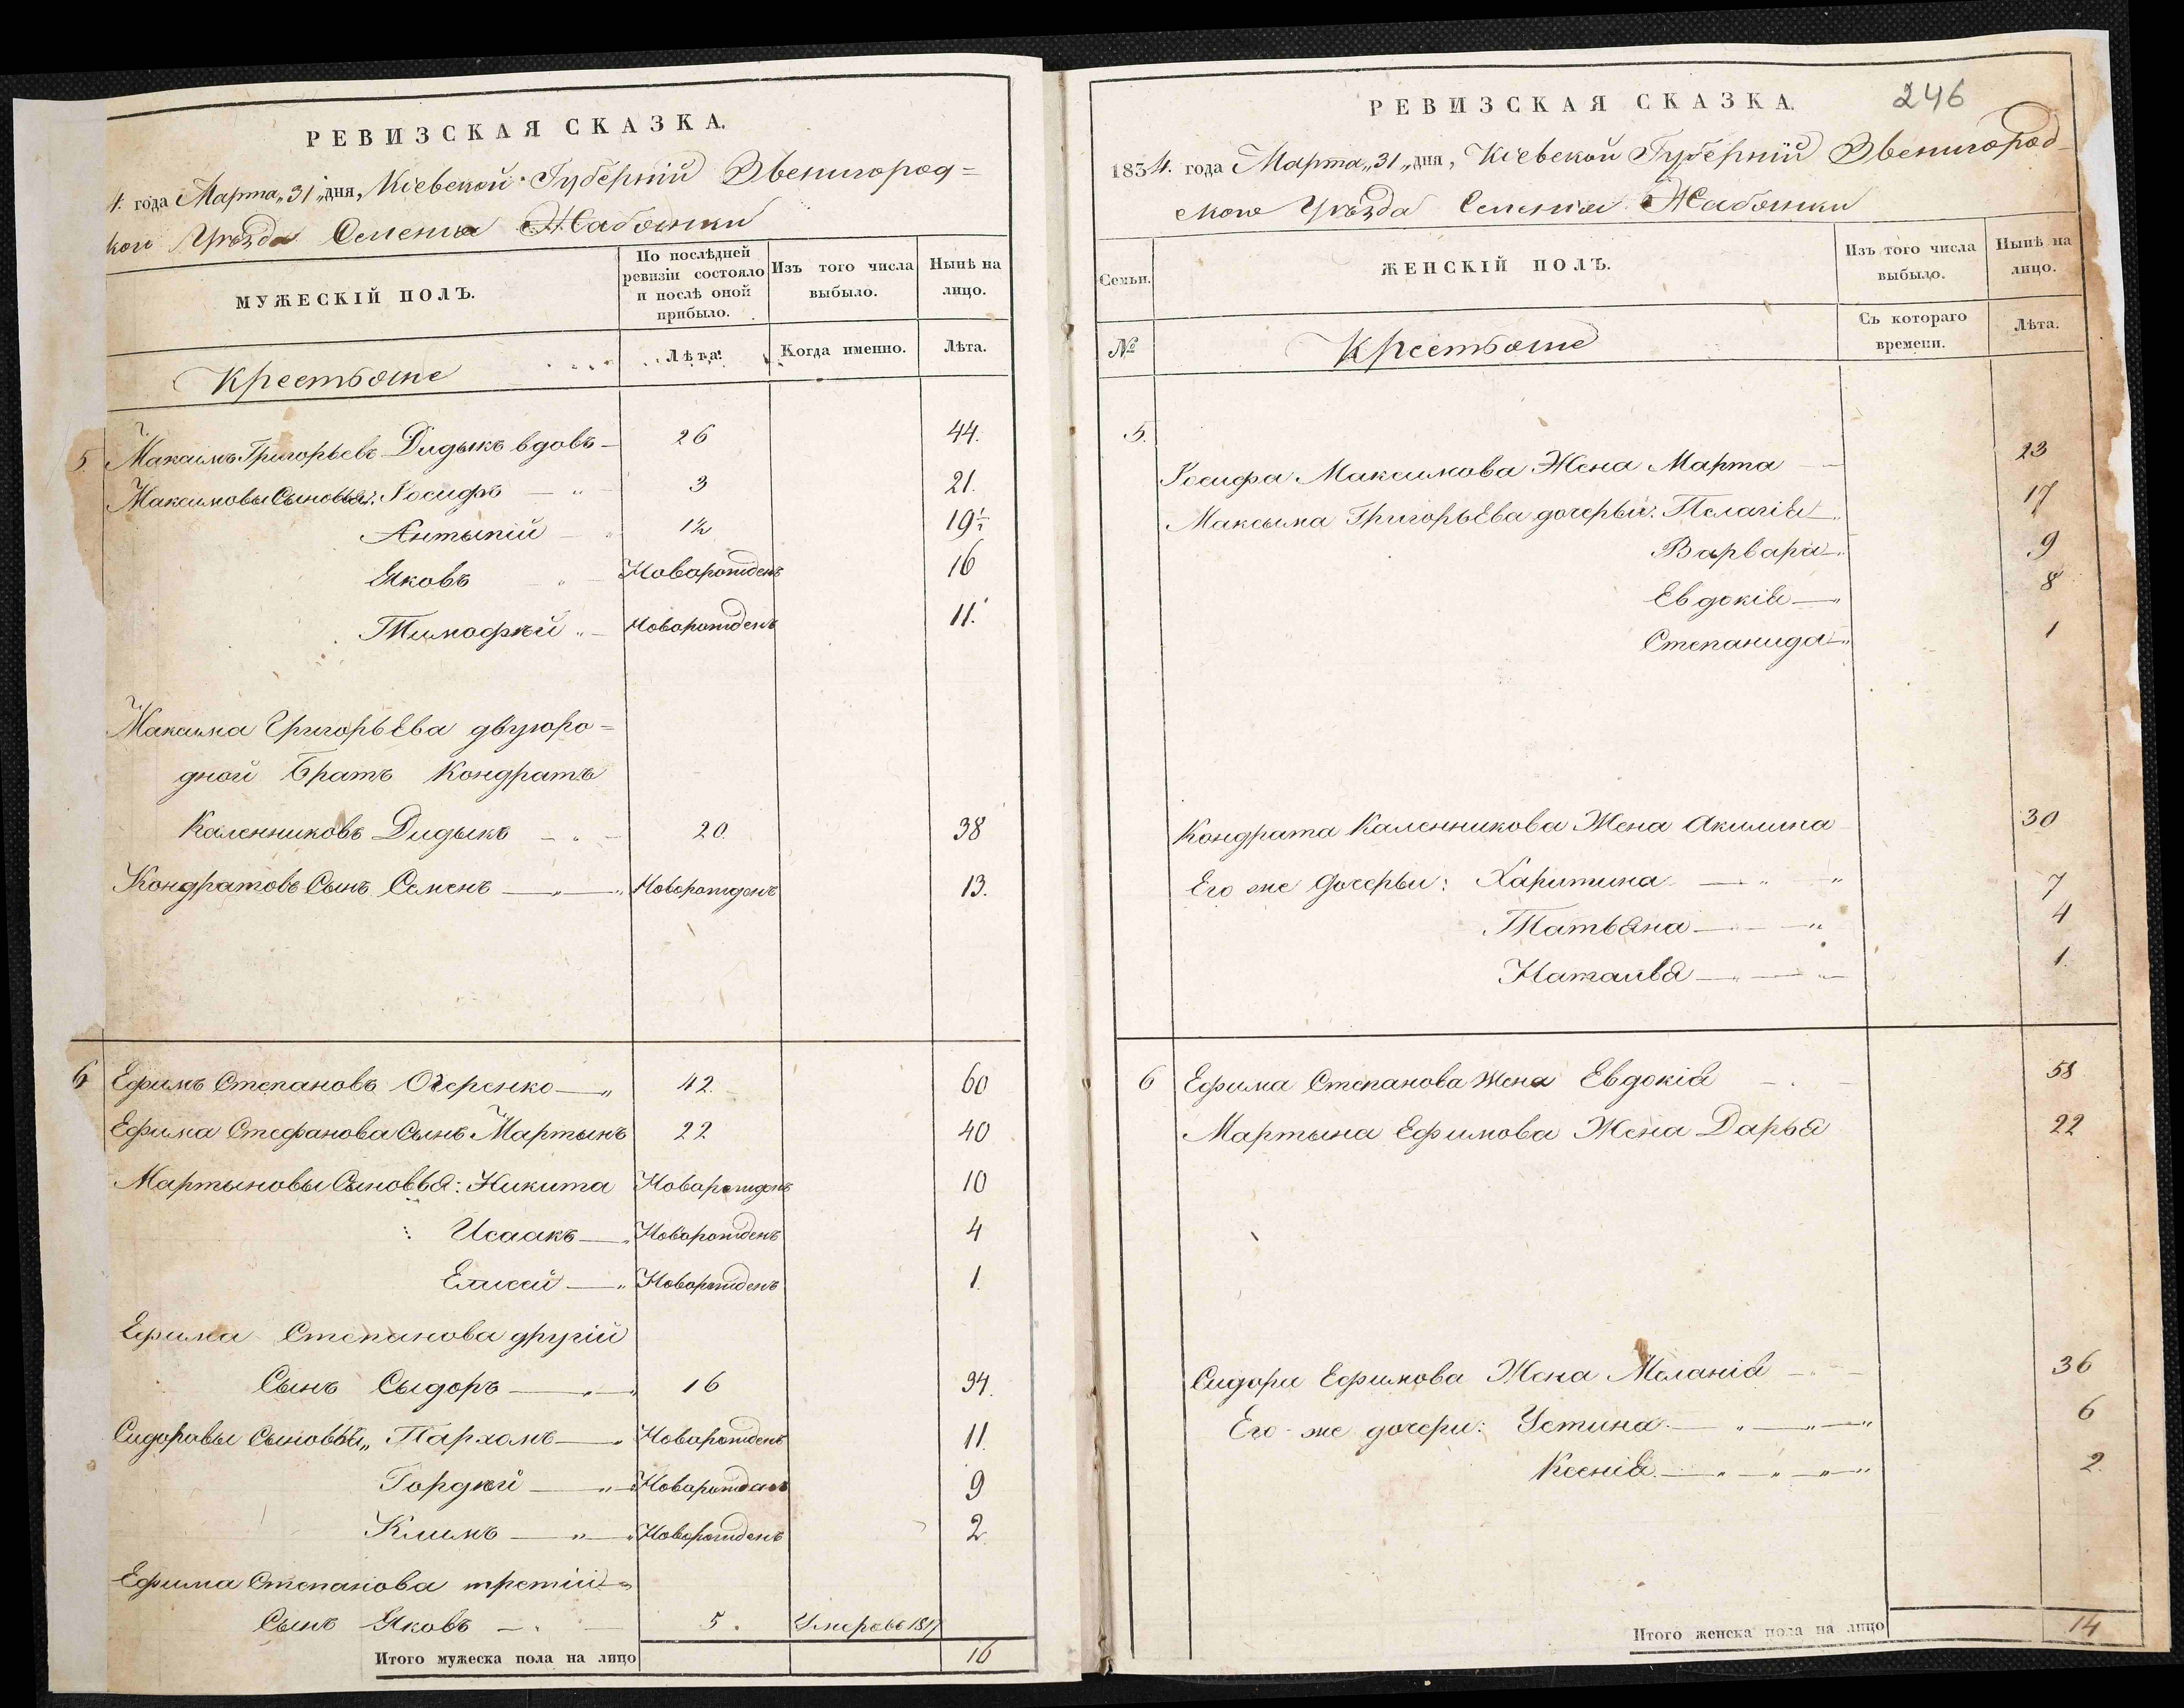 РЕВИЗСКАЯ СКАЗКА.
4. года Марта „31„ дня, Кіевской Губерніи Звенигород=
кого Уѣзда Селенія Жабянки
МУЖЕСКІЙ ПОЛЪ.
По послѣдней ревизіи состояло и послѣ оной прибыло.
Изъ того числа выбыло.
Нынѣ на лицо.
Крестьяне
Лѣта.
Когда именно.
Лѣта.
5 Максимъ Григорьевъ Дидыкъ вдовъ 26 44.
Максимовы Сыновья: Іосифъ 3 21.
Антыпій 1½ 19½
Яковъ Новорожденъ 16
Тимофѣй Новорожденъ 11.
Максима Григорьева двуюро=
дной Братъ Кондратъ
Каленниковъ Дидыкъ 20. 38
Кондратовъ Сынъ Семенъ Новорожденъ 13.
6 Ефимъ Степановъ Очеренко 42. 60
Ефима Стефанова Сынъ Мартынъ 22 40
Мартыновы Сыновья: Никита Новорожденъ 10
Исаакъ Новорожденъ 4
Елисей Новорожденъ 1.
Ефима Степанова другій
Сынъ Сыдоръ 16 34.
Сидоровы Сыновья„ Пархомъ Новорожденъ 11.
Гордѣй Новорожденъ 9
Климъ Новорожденъ 2
Ефима Степанова третій
Сынъ Яковъ 5. Умеръ въ
Итого мужеска пола на лицо 16
РЕВИЗСКАЯ СКАЗКА.
246
1854. года Марта „31„ дня, Кіевской Губерніи Звенигород-
ского Уѣзда Селенія Жабянки
Семьи.
ЖЕНСКІЙ ПОЛЪ.
Изъ того числа выбыло.
Нынѣ на лицо.
№
Крестьяне
Съ котораго времени.
Лѣта.
5.
Іосифа Максимова Жена Марта 23
Максыма Григорьева дочерьи: Пелагія 17
Варвара 9
Евдокія 8
Степанида 1
Кондрата Каленникова Жена Акилина 30
Его же Дочерьи: Харитина 7
Татьяна 4
Наталья 1.
6 Ефима Степанова Жена Евдокія 58
Мартына Ефимова Жена Дарья 22
Сидора Ефимова Жена Меланія 36
Его-же дочери: Устина 6
Ксенія 2.
Итого женска пола на лицо 14